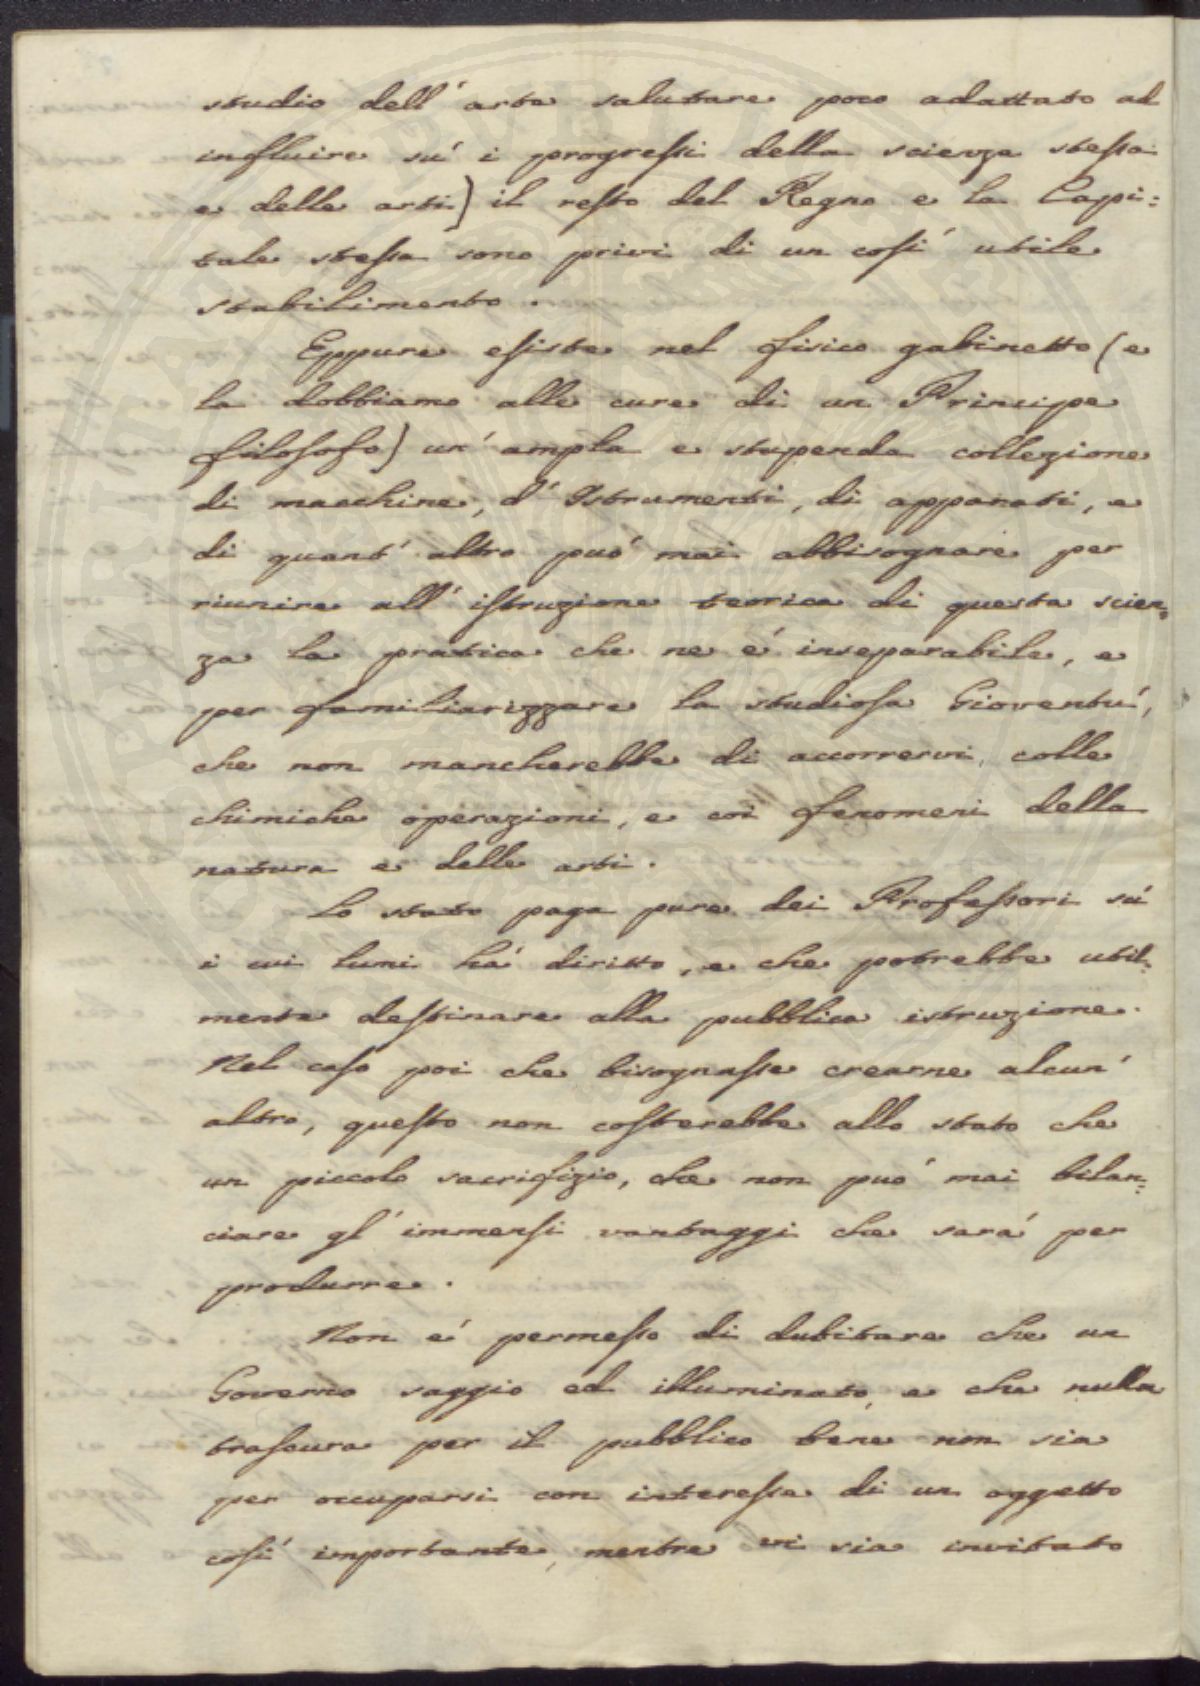 studio dell' arte salutare poco adattato ad
influire sú i progressi della scienza stessa
e delle arti) il resto del Regno e la Capi:
tale stessa sono privi di un cosí utile
stabilimento.
Eppure esiste nel fisico gabinetto (e
la dobbiamo alle cure di un Principe
filosofo) un' ampla e stupenda collezione
di macchine, d' Istrumenti, di apparati, e
di quant' altro puó mai abbisognare per
riunire all' istruzione teorica di questa scien:
za la pratica che ne é inseparabile, e
per familiarizzare la studiosa Gioventú,
che non mancherebbe di accorrervi, colle
chimiche operazioni, e coi fenomeni della
natura e delle arti.
Lo stato paga pure dei Professori sú
i cui lumi há diritto, e che potrebbe util:
mente destinare alla pubblica istruzione.
Nel caso poi che bisognasse crearne alcun'
altro, questo non costerebbe allo stato che
un piccolo sacrifizio, che non puó mai bilan:
ciare gl' immensi vantaggi che sará per
produrre.
Non é permesso di dubitare che un
Governo saggio ed illuminato, e che nulla
trascura per il pubblico bene non sia
per occuparsi con interesse di un oggetto
cosí importante, mentre vi sia invitato